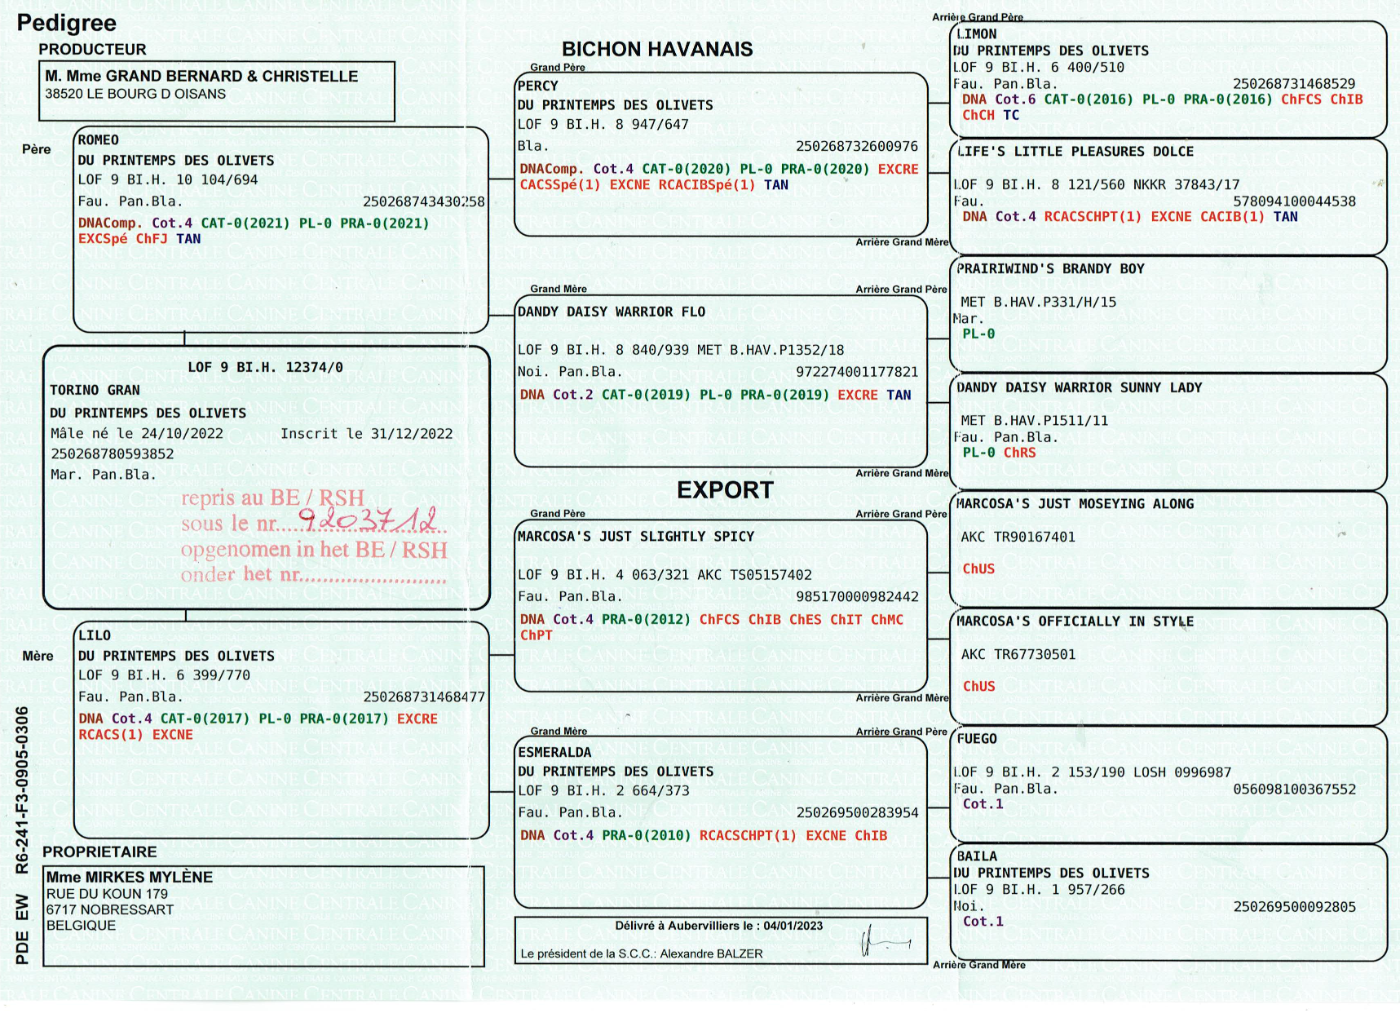 Pedigree
PRODUCTEUR
M. Mme GRAND BERNARD & CHRISTELLE
38520 LE BOURG D OISANS
BICHON HAVANAIS
Père
ROMEO
DU PRINTEMPS DES OLIVETS
LOF 9 BI.H. 10 104/694
Fau. Pan.Bla. 250268743430258
DNAComp. Cot.4 CAT-0(2021) PL-0 PRA-0(2021)
EXCSpé ChFJ TAN
LOF 9 BI.H. 12374/0
TORINO GRAN
DU PRINTEMPS DES OLIVETS
Mâle né le 24/10/2022 Inscrit le 31/12/2022
250268780593852
Mar. Pan.Bla.
repris au BE / RSH
sous le nr....9203712
opgenomen in het BE / RSH
onder het nr..........................
Mère
LILO
DU PRINTEMPS DES OLIVETS
LOF 9 BI.H. 6 399/770
Fau. Pan.Bla. 250268731468477
DNA Cot.4 CAT-0(2017) PL-0 PRA-0(2017) EXCRE
RCACS(1) EXCNE
PROPRIETAIRE
Mme MIRKES MYLÈNE
RUE DU KOUN 179
6717 NOBRESSART
BELGIQUE
PDE EW R6-241-F3-0905-0306
Grand Père
PERCY
DU PRINTEMPS DES OLIVETS
LOF 9 BI.H. 8 947/647
Bla. 250268732600976
DNAComp. Cot.4 CAT-0(2020) PL-0 PRA-0(2020) EXCRE
CACSSpé(1) EXCNE RCACIBSpé(1) TAN
Grand Mère
DANDY DAISY WARRIOR FLO
LOF 9 BI.H. 8 840/939 MET B.HAV.P1352/18
Noi. Pan.Bla. 972274001177821
DNA Cot.2 CAT-0(2019) PL-0 PRA-0(2019) EXCRE TAN
EXPORT
Grand Père
MARCOSA'S JUST SLIGHTLY SPICY
LOF 9 BI.H. 4 063/321 AKC TS05157402
Fau. Pan.Bla. 985170000982442
DNA Cot.4 PRA-0(2012) ChFCS ChIB ChES ChIT ChMC
ChPT
Grand Mère
ESMERALDA
DU PRINTEMPS DES OLIVETS
LOF 9 BI.H. 2 664/373
Fau. Pan.Bla. 250269500283954
DNA Cot.4 PRA-0(2010) RCACSCHPT(1) EXCNE ChIB
Délivré à Aubervilliers le : 04/01/2023
Le président de la S.C.C.: Alexandre BALZER
Arrière Grand Père
LIMON
DU PRINTEMPS DES OLIVETS
LOF 9 BI.H. 6 400/510
Fau. Pan.Bla. 250268731468529
DNA Cot.6 CAT-0(2016) PL-0 PRA-0(2016) ChFCS ChIB
ChCH TC
LIFE'S LITTLE PLEASURES DOLCE
LOF 9 BI.H. 8 121/560 NKKR 37843/17
Fau. 578094100044538
DNA Cot.4 RCACSCHPT(1) EXCNE CACIB(1) TAN
Arrière Grand Mère
Arrière Grand Père
PRAIRIWIND'S BRANDY BOY
MET B.HAV.P331/H/15
Mar.
PL-0
DANDY DAISY WARRIOR SUNNY LADY
MET B.HAV.P1511/11
Fau. Pan.Bla.
PL-0 ChRS
Arrière Grand Mère
Arrière Grand Père
MARCOSA'S JUST MOSEYING ALONG
AKC TR90167401
ChUS
MARCOSA'S OFFICIALLY IN STYLE
AKC TR67730501
ChUS
Arrière Grand Mère
Arrière Grand Père
FUEGO
LOF 9 BI.H. 2 153/190 LOSH 0996987
Fau. Pan.Bla. 056098100367552
Cot.1
BAILA
DU PRINTEMPS DES OLIVETS
LOF 9 BI.H. 1 957/266
Noi. 250269500092805
Cot.1
Arrière Grand Mère